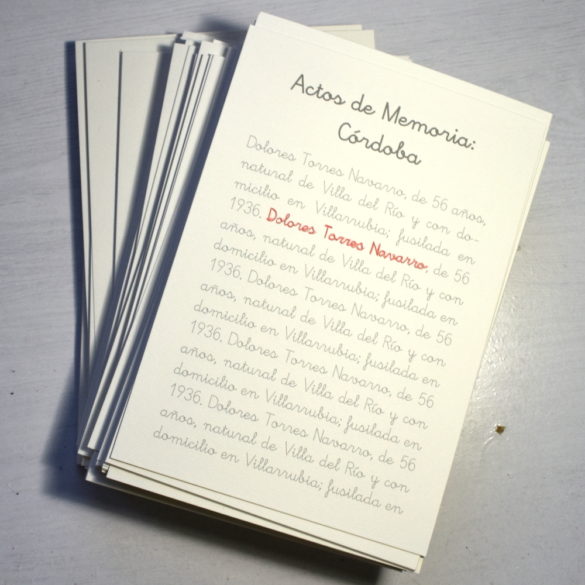 Actos de Memoria:
Córdoba
Dolores Torres Navarro, de 56 años,
natural de Villa del Río y con do-
micilio en Villarrubia; fusilada en
1936. Dolores Torres Navarro, de 56
años, natural de Villa del Río y con
domicilio en Villarrubia; fusilada en
1936. Dolores Torres Navarro, de 56
años, natural de Villa del Río y con
domicilio en Villarrubia; fusilada en
1936. Dolores Torres Navarro, de 56
años, natural de Villa del Río y con
domicilio en Villarrubia; fusilada en
1936. Dolores Torres Navarro, de 56
años, natural de Villa del Río y con
domicilio en Villarrubia; fusilada en